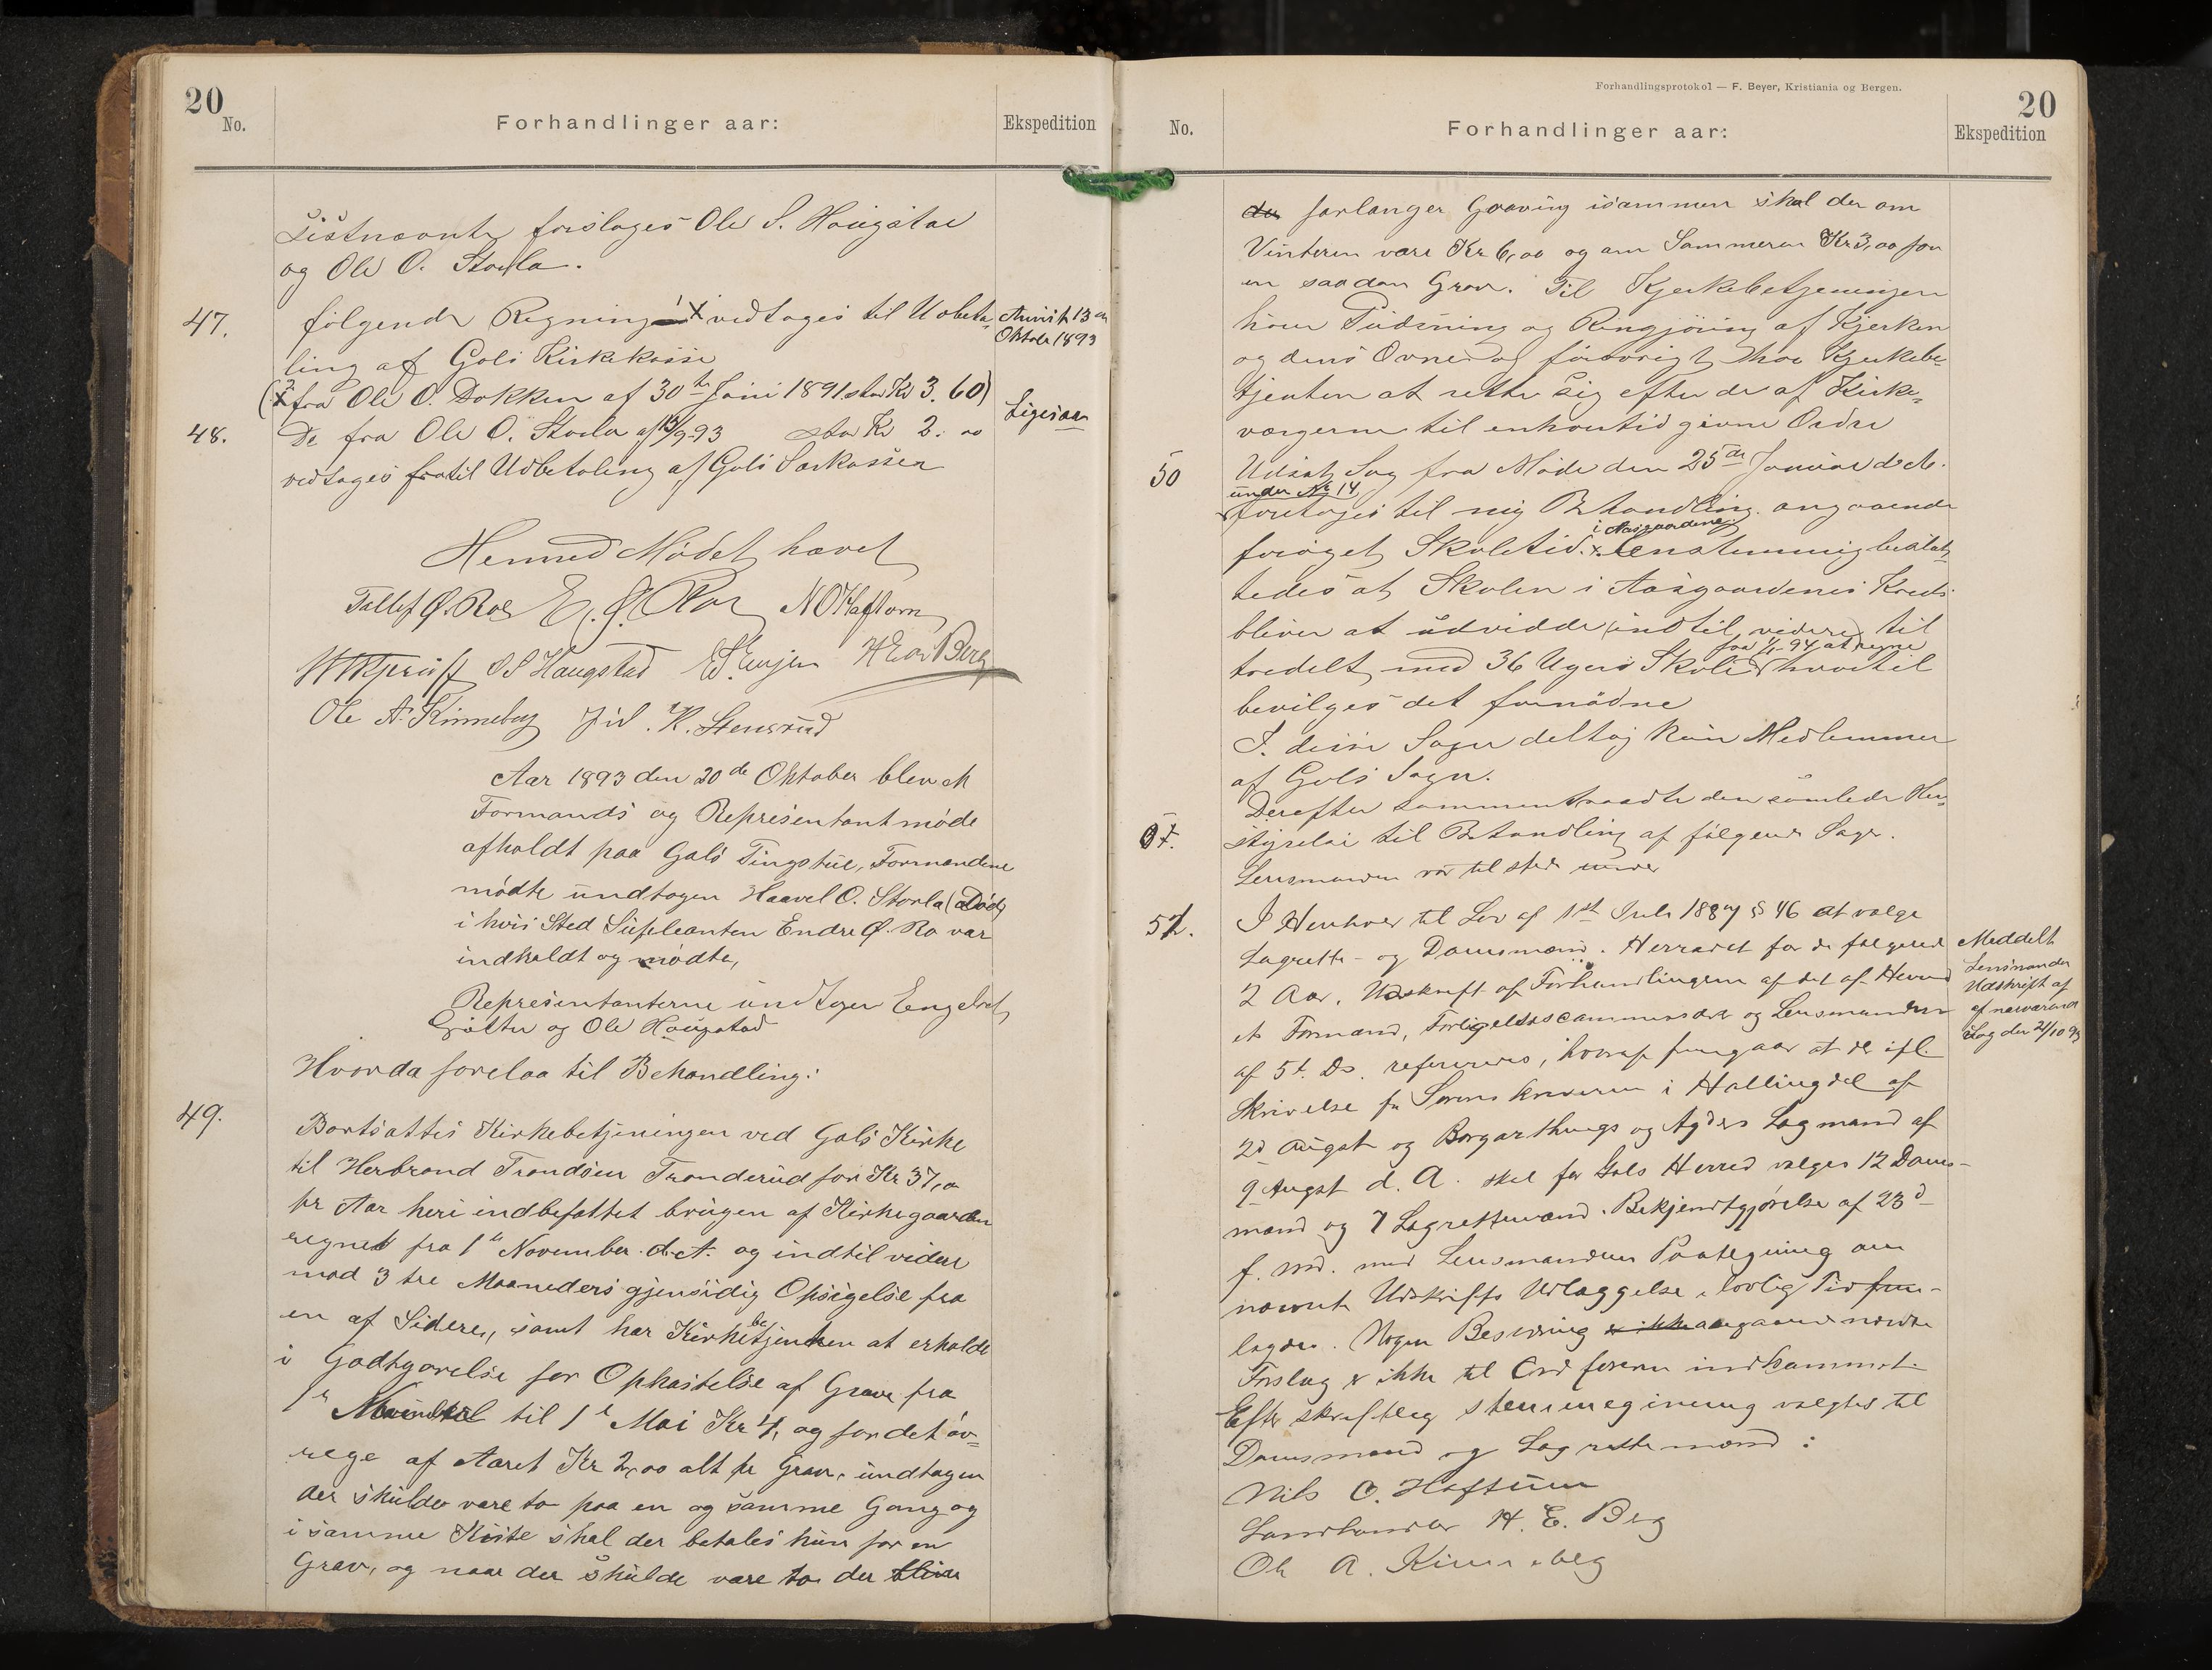 20
No.
Forhandlinger aar:
Ekspedition
Sistnævnte forslages Ole S. Haugstad
og Ole O. Storla.
47.
følgende Regning x vedtages til Udbeta-
ling af Gols Kirkekasse
(x fra Ole O. Dokken af 30te Juni 1891 stor Kr 3.60)
Anvist 13de
Oktober 1893
48.
De fra Ole O. Storla af 13/9-93 stor Kr 2.00
vedtages fra til Udbetaling af Gols Sækassen
Ligesaa
Hermed Mødet hævet
Tollef Ø. Roe E. Ø. Roe N O Haftorn
S S Haugstad H E Berg
Ole A. Kinneberg K. Stensrud
Aar 1893 den 20de Oktober blev et
Formands og Representantmøde
afholdt paa Gols Tingstue, Formændene
mødte undtagen Haavel O. Storla (Død)
i hvis Sted Supleanten Endre Ø. Ro var
indkaldt og mødte,
Representanterne undtagen Engebret
Golter og Ole Haugstad
Hvorda forelaa til Behandling:
49.
Bortsattes Kirkebetjeningen ved Gols Kirke
til Herbrand Trondsen Tronderud for Kr 37,00
pr Aar heri indbefattet brugen af Kirkegaarden
regnet fra 1te November d. A. og indtil videre
mod 3 tre Maaneders gjensidig Opsigelse fra
en af Siderne, samt har Kirkebetjenten at erholde
i Godtgørelse for Opkastelse af Grave fra
1te November til 1te Mai Kr 4, og for det øv-
rige af Aaret Kr 2,00 alt pr Grav, undtagen
der skulde være to paa en og samme Gang og
i samme Kiste skal der betales kun for en
Grav, og naar der skulde være to der bliver
Forhandlingsprotokol — F. Beyer, Kristiania og Bergen.
20
No.
Forhandlinger aar:
Ekspedition
der forlanger Graving isammen skal der om
Vinteren være Kr 6,00 og om Sommeren Kr 3,00 for
en saadan Grav. Til Kjerkebetjeningen
hører Pudsning og Ringjøring af Kjerken
og dens Ovne og forøvrigt har Kjerkebe-
tjenten at rette sig efter de af Kirke-
værgerne til enhvertid givne Ordre
50
Udsat Sag fra Møde den 25de Januar d. A.
under No 14
foretages til ny Behandling angaaende
i Aasgaardene
forøget Skoletid. x Enstemmig beslut-
tedes at Skolen i Aasgaardenes Kreds
bliver at udvidde indtil videre til
fra 1/1 94 at regne
tredelt med 36 Ugers Skole hvortil
bevilges det fornødne
I disse Sager deltog kun Medlemmer
af Gols Sogn.
Derefter sammentraadte den samlede Her-
styrelse til Behandling af følgende Sager.
Lensmanden var til stede under
51.
I Henhold til Lov af 1st Juli 1887 § 46 at vælge
Lagrette- og Domsmænd. Herradet for de følgende
2 Aar. Udskrift af Forhandlingerne af det af Herred
ets Formænd, Forligelsescommissærer og Lensmanden
af 5t. Ds. refereres, hvoraf fremgaar at der ifl.
Skrivelse fr Sorenskriveren i Hallingdal af
2d August og Borgarthings og Agders Lagmand af
9 August d. A. skal for Gols Herred vælges 12 Doms-
mænd og 7 Lagrettemænd. Bekjendtgjørelse af 23d
f. Md. med Lensmandens Paategning om
nævnte Udskrifts Udlæggelse i lovlig Tid frem-
lagdes. Nogen Besværing er ikke angaaende nævnte
Forslag er ikke til Ordføreren indkommet.
Efter skriftlig stemmegivning valgtes til
Domsmænd og Lagrettemænd:
Nils O. Haftun
Landhandler H. E. Berg
Ole A. Kinneberg
Meddelt
Lensmanden
Udskrift af
af nærværende
Sag den 21/10 93